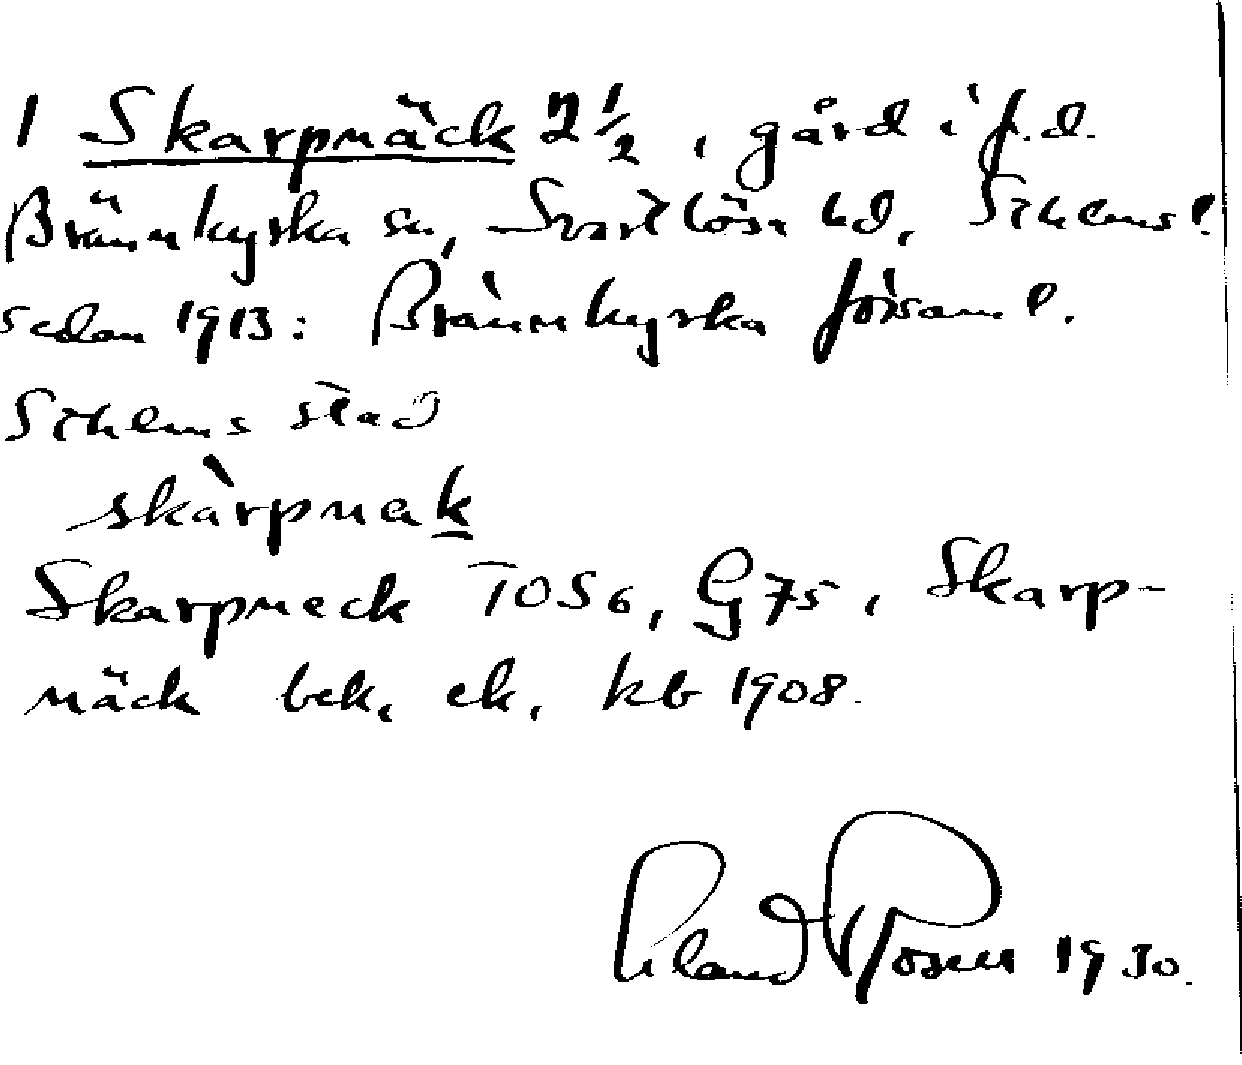 1 Skarpnäck 2 1/2, gård i f.d.
Brännkyrka sn, Svartlösa hd, Sthms l.
sedan 1913: Brännkyrka församl.
Sthlms stad
skàrpnak
Skarpneck TOS6, G75, Skarp-
näck bek, ek, kb 1908.
Rosen 1930.